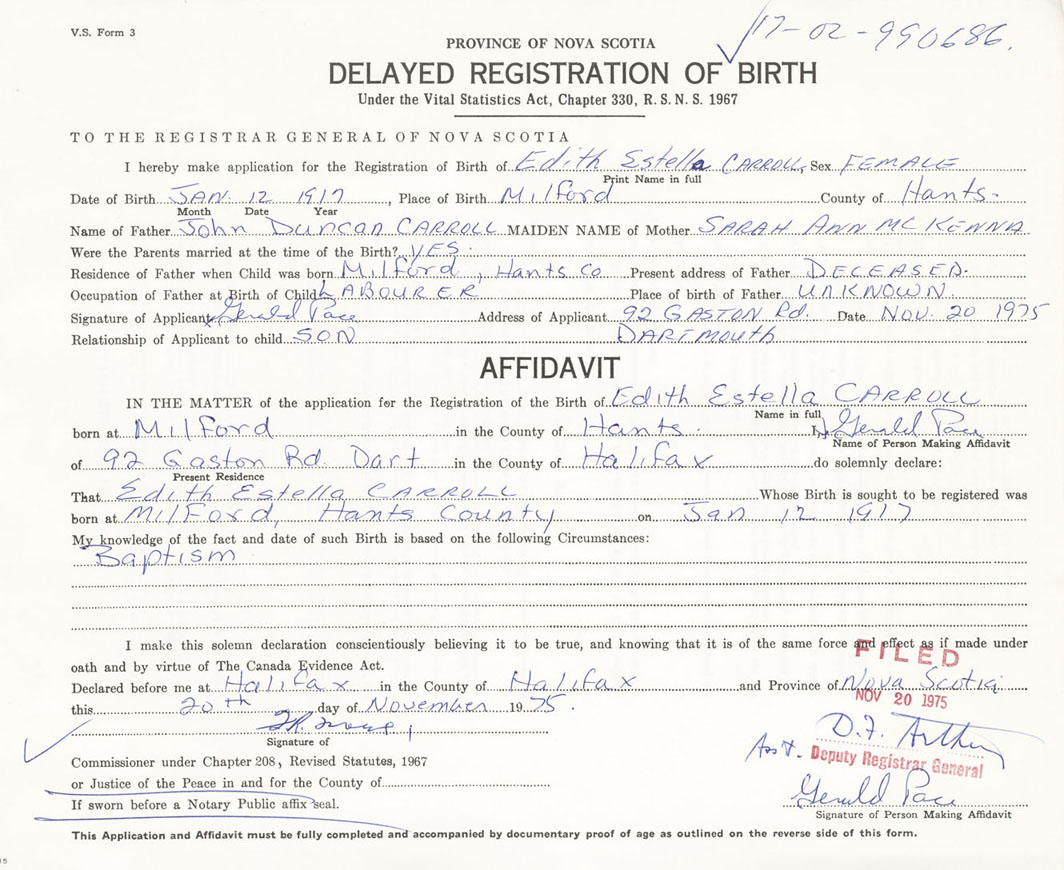 V.S. Form 3
17-02-990686.
PROVINCE OF NOVA SCOTIA
DELAYED REGISTRATION OF BIRTH
Under the Vital Statistics Act, Chapter 330, R.S.N.S. 1967
TO THE REGISTRAR GENERAL OF NOVA SCOTIA
I hereby make application for the Registration of Birth of Edith Estella CARROLL, Sex FEMALE
Print Name in full
Date of Birth JAN. 12 1917, Place of Birth Milford County of Hants-
Month Date Year
Name of Father John Duncan CARROLL MAIDEN NAME of Mother SARAH ANN MCKENNA
Were the Parents married at the time of the Birth? YES
Residence of Father when Child was born Milford, Hants Co Present address of Father DECEASED.
Occupation of Father at Birth of Child LABOURER Place of birth of Father UNKNOWN.
Signature of Applicant x Gerald Pace Address of Applicant 92 GASTON Rd. Date NOV. 20 1975
Relationship of Applicant to child SON DARTMOUTH
AFFIDAVIT
IN THE MATTER of the application for the Registration of the Birth of Edith Estella CARROLL
Name in full
born at Milford in the County of Hants. I, x Gerald Pace
Name of Person Making Affidavit
of 92 Gaston Rd. Dart in the County of Halifax do solemnly declare:
Present Residence
That Edith Estella CARROLL Whose Birth is sought to be registered was
born at Milford, Hants County on Jan 12 1917
My knowledge of the fact and date of such Birth is based on the following Circumstances:
Baptism
I make this solemn declaration conscientiously believing it to be true, and knowing that it is of the same force and effect as if made under
oath and by virtue of The Canada Evidence Act.
FILED
Declared before me at Halifax in the County of Halifax and Province of Nova Scotia
NOV 20 1975
this 20th day of November 1975.
Signature of
D.F. Arthur
Commissioner under Chapter 208, Revised Statutes, 1967
Ass't. Deputy Registrar General
or Justice of the Peace in and for the County of
If sworn before a Notary Public affix seal.
Gerald Pace
Signature of Person Making Affidavit
This Application and Affidavit must be fully completed and accompanied by documentary proof of age as outlined on the reverse side of this form.
15